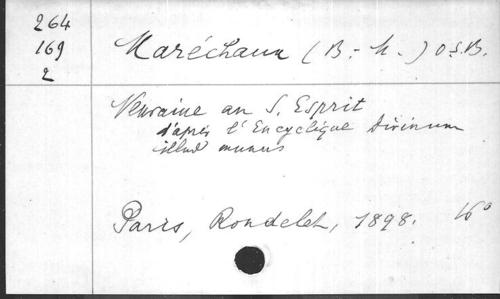 264
169
2
Maréchaux (B.-M.) O.S.B.
Neuvaine au S. Esprit
d'après l'Encyclique Divinum
illud munus
Paris, Rondelet, 1898. 16°